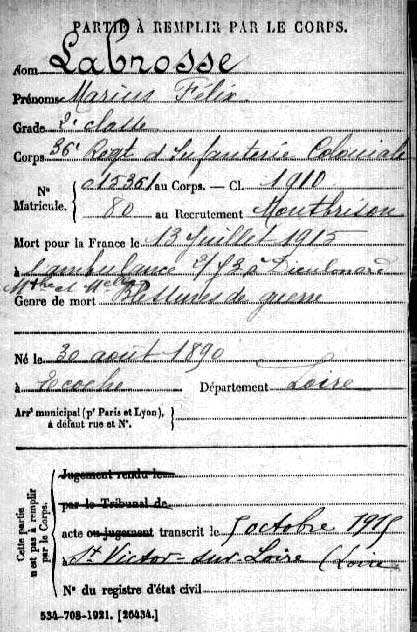 PARTIE À REMPLIR PAR LE CORPS.
Nom Labrosse
Prénoms Marius Félix
Grade 2e classe
Corps 36e Regt d'Infanterie Coloniale
N° Matricule. { 015351 au Corps. — Cl. 1910
80 au Recrutement Montbrison
Mort pour la France le 13 Juillet 1915
à l'ambulance 2/52 à Dieulouard
Mthe et Mlle
Genre de mort Blessures de guerre
Né le 30 août 1890
à Ecoche Département Loire
Arrt municipal (pr Paris et Lyon), à défaut rue et N°. }
Cette partie n'est pas à remplir par le Corps.
Jugement rendu le
par le Tribunal de
acte ou jugement transcrit le 5 octobre 1915
à St Victor-sur-Loire (Loire
N° du registre d'état civil
534-708-1921. [26434.]